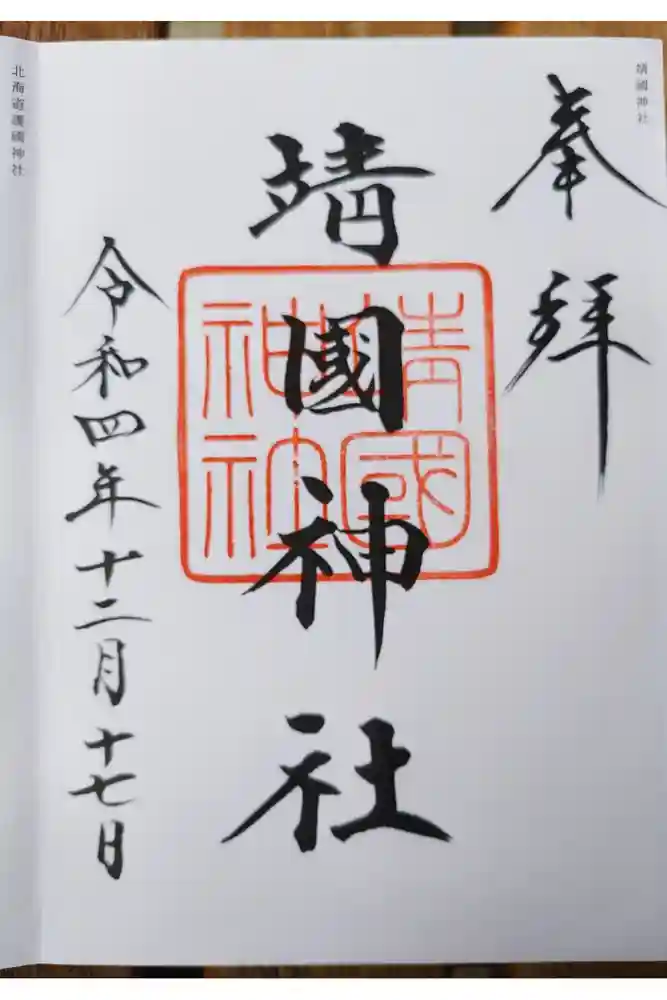 靖國神社
奉拝
靖國神社
靖國神社
令和四年十二月十七日
北海道護國神社